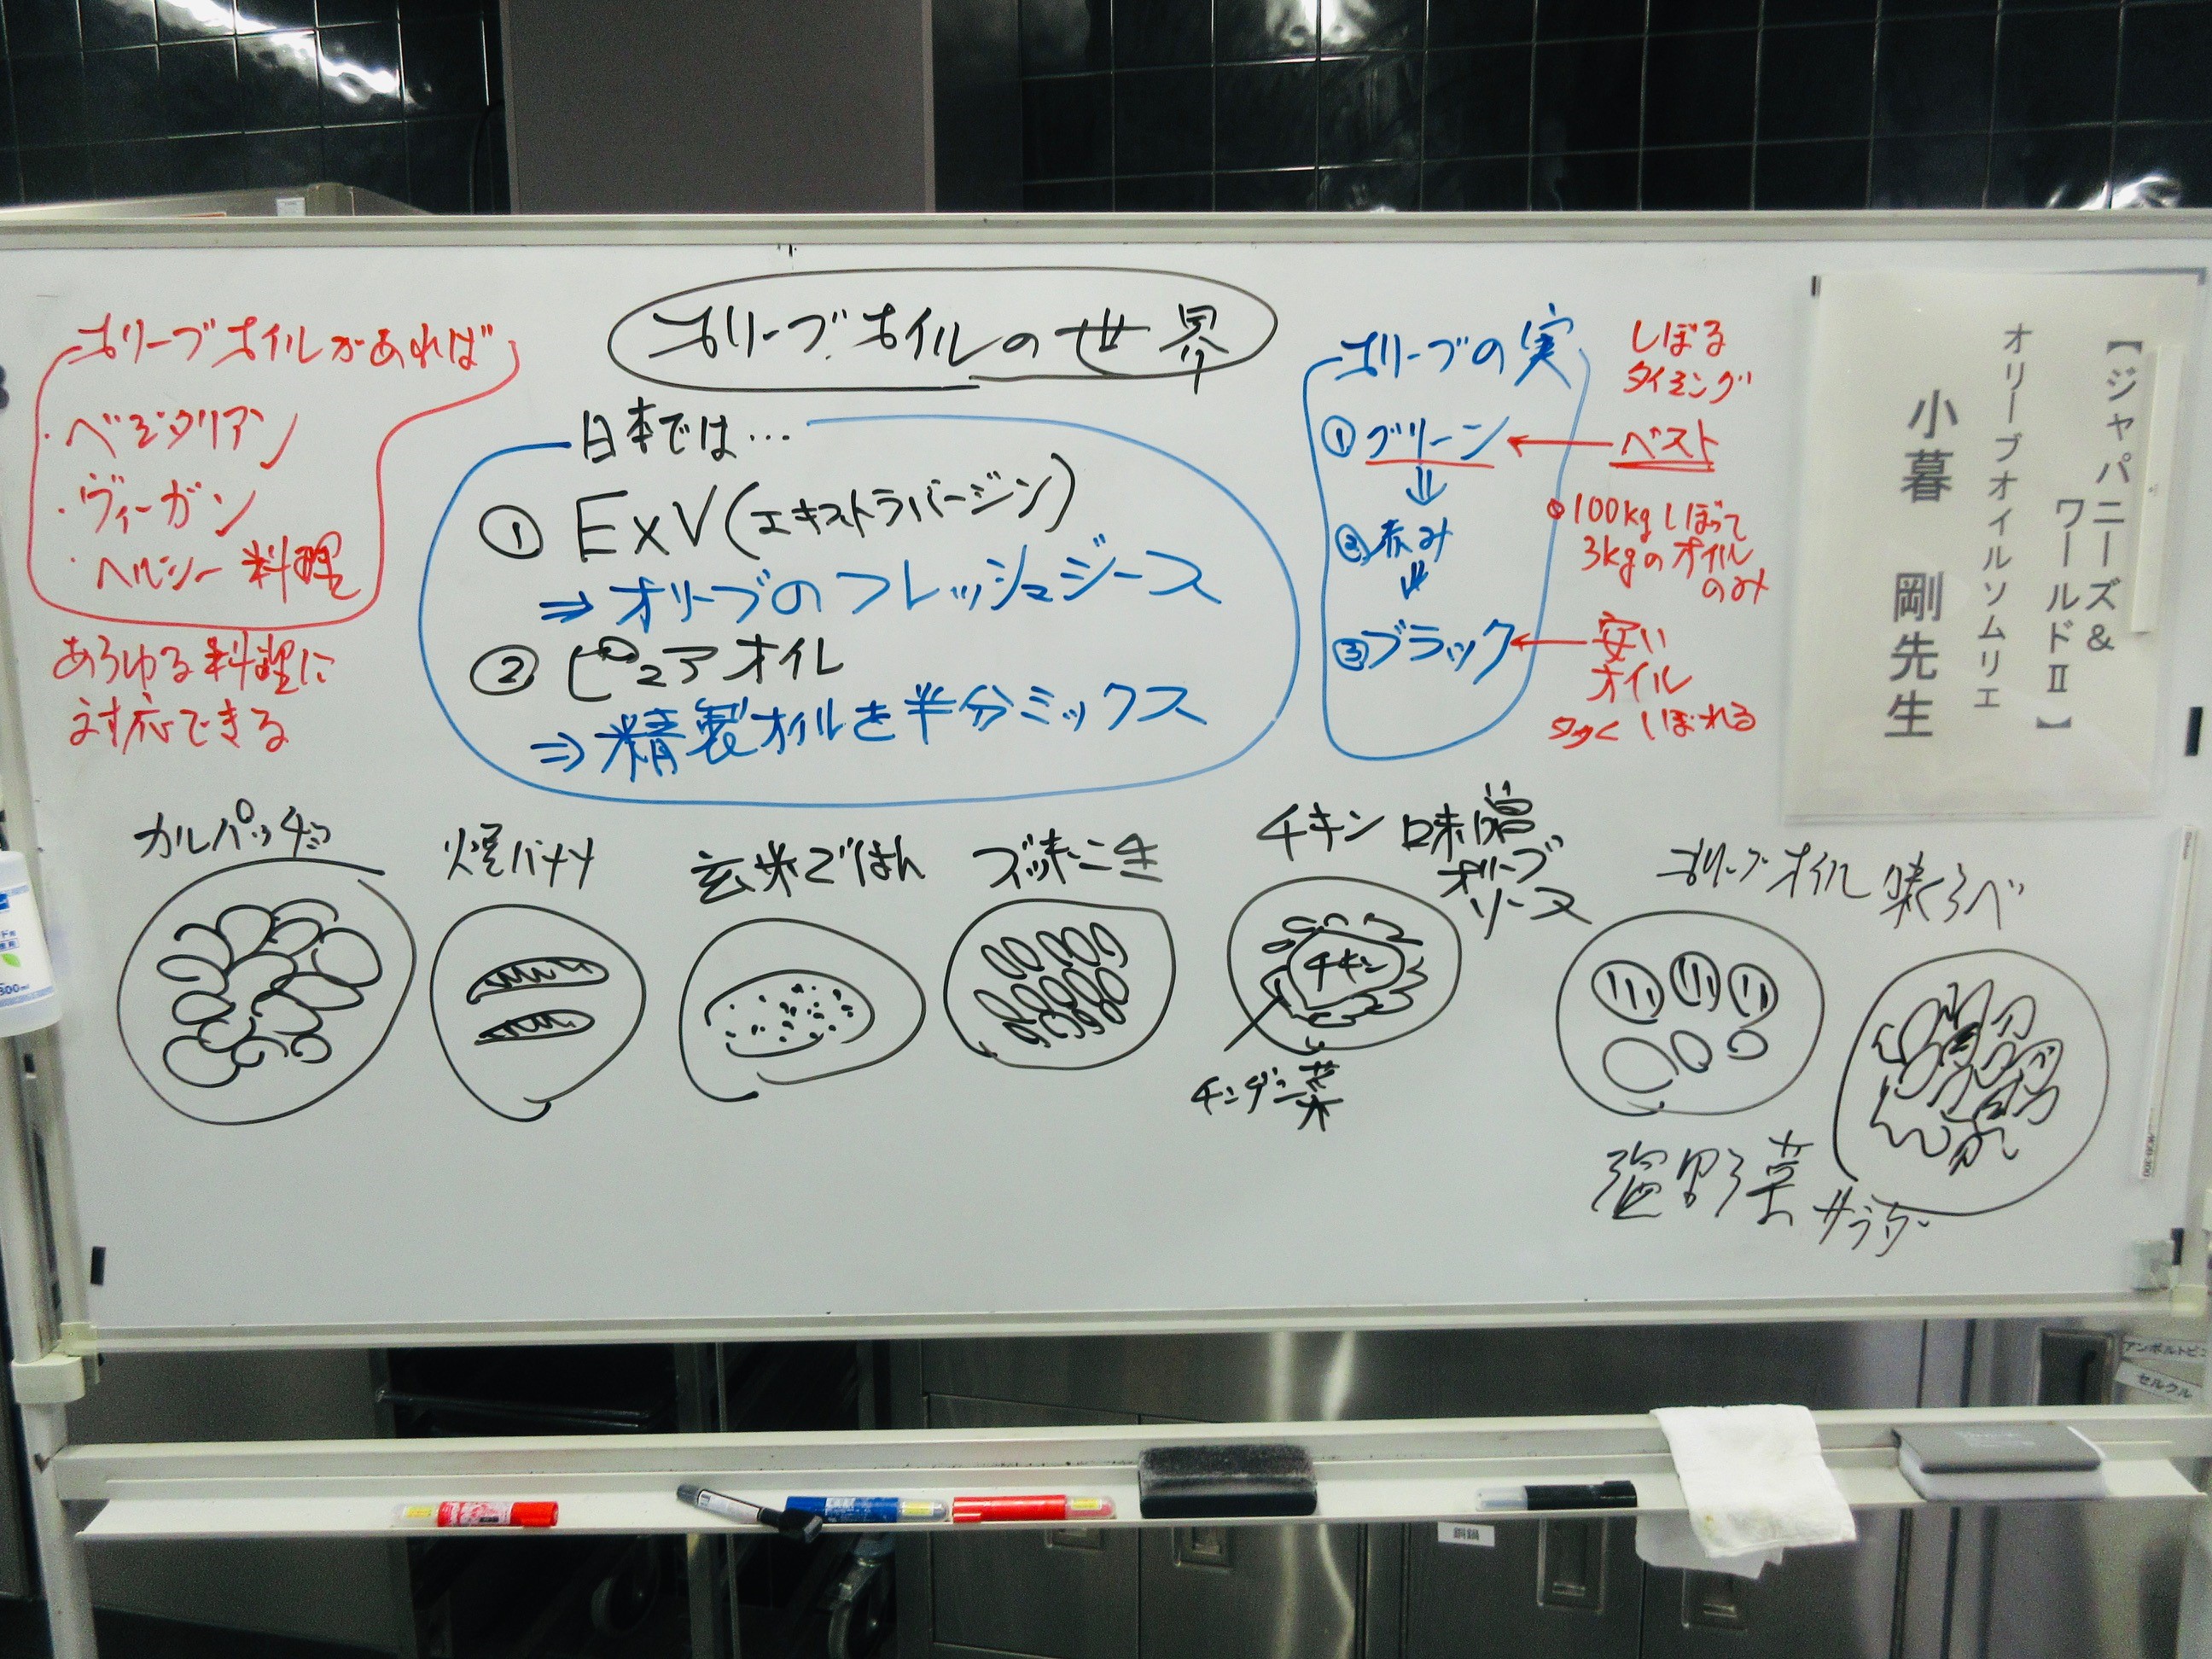 オリーブオイルの世界
オリーブオイルがあれば
・ベジタリアン
・ヴィーガン
・ヘルシー料理
あらゆる料理に
対応できる
日本では…
① ExV(エキストラバージン)
⇒ オリーブのフレッシュジュース
② ピュアオイル
⇒ 精製オイルを半分ミックス
オリーブの実
① グリーン ← ベスト
⇓
② 赤み
⇓
③ ブラック ← 安い
オイル
多くしぼれる
しぼる
タイミング
100kgしぼって
3kgのオイル
のみ
【ジャパニーズ&
ワールドⅡ】
オリーブオイルソムリエ
小暮 剛先生
カルパッチョ
焼バナナ
玄米ごはん
ズッキーニ
チキン 味噌
オリーブ
ソース
チキン
チンゲン菜
オリーブオイル 味くらべ
温野菜 サラダ
アンポルトピエ
セルクル
銅鍋